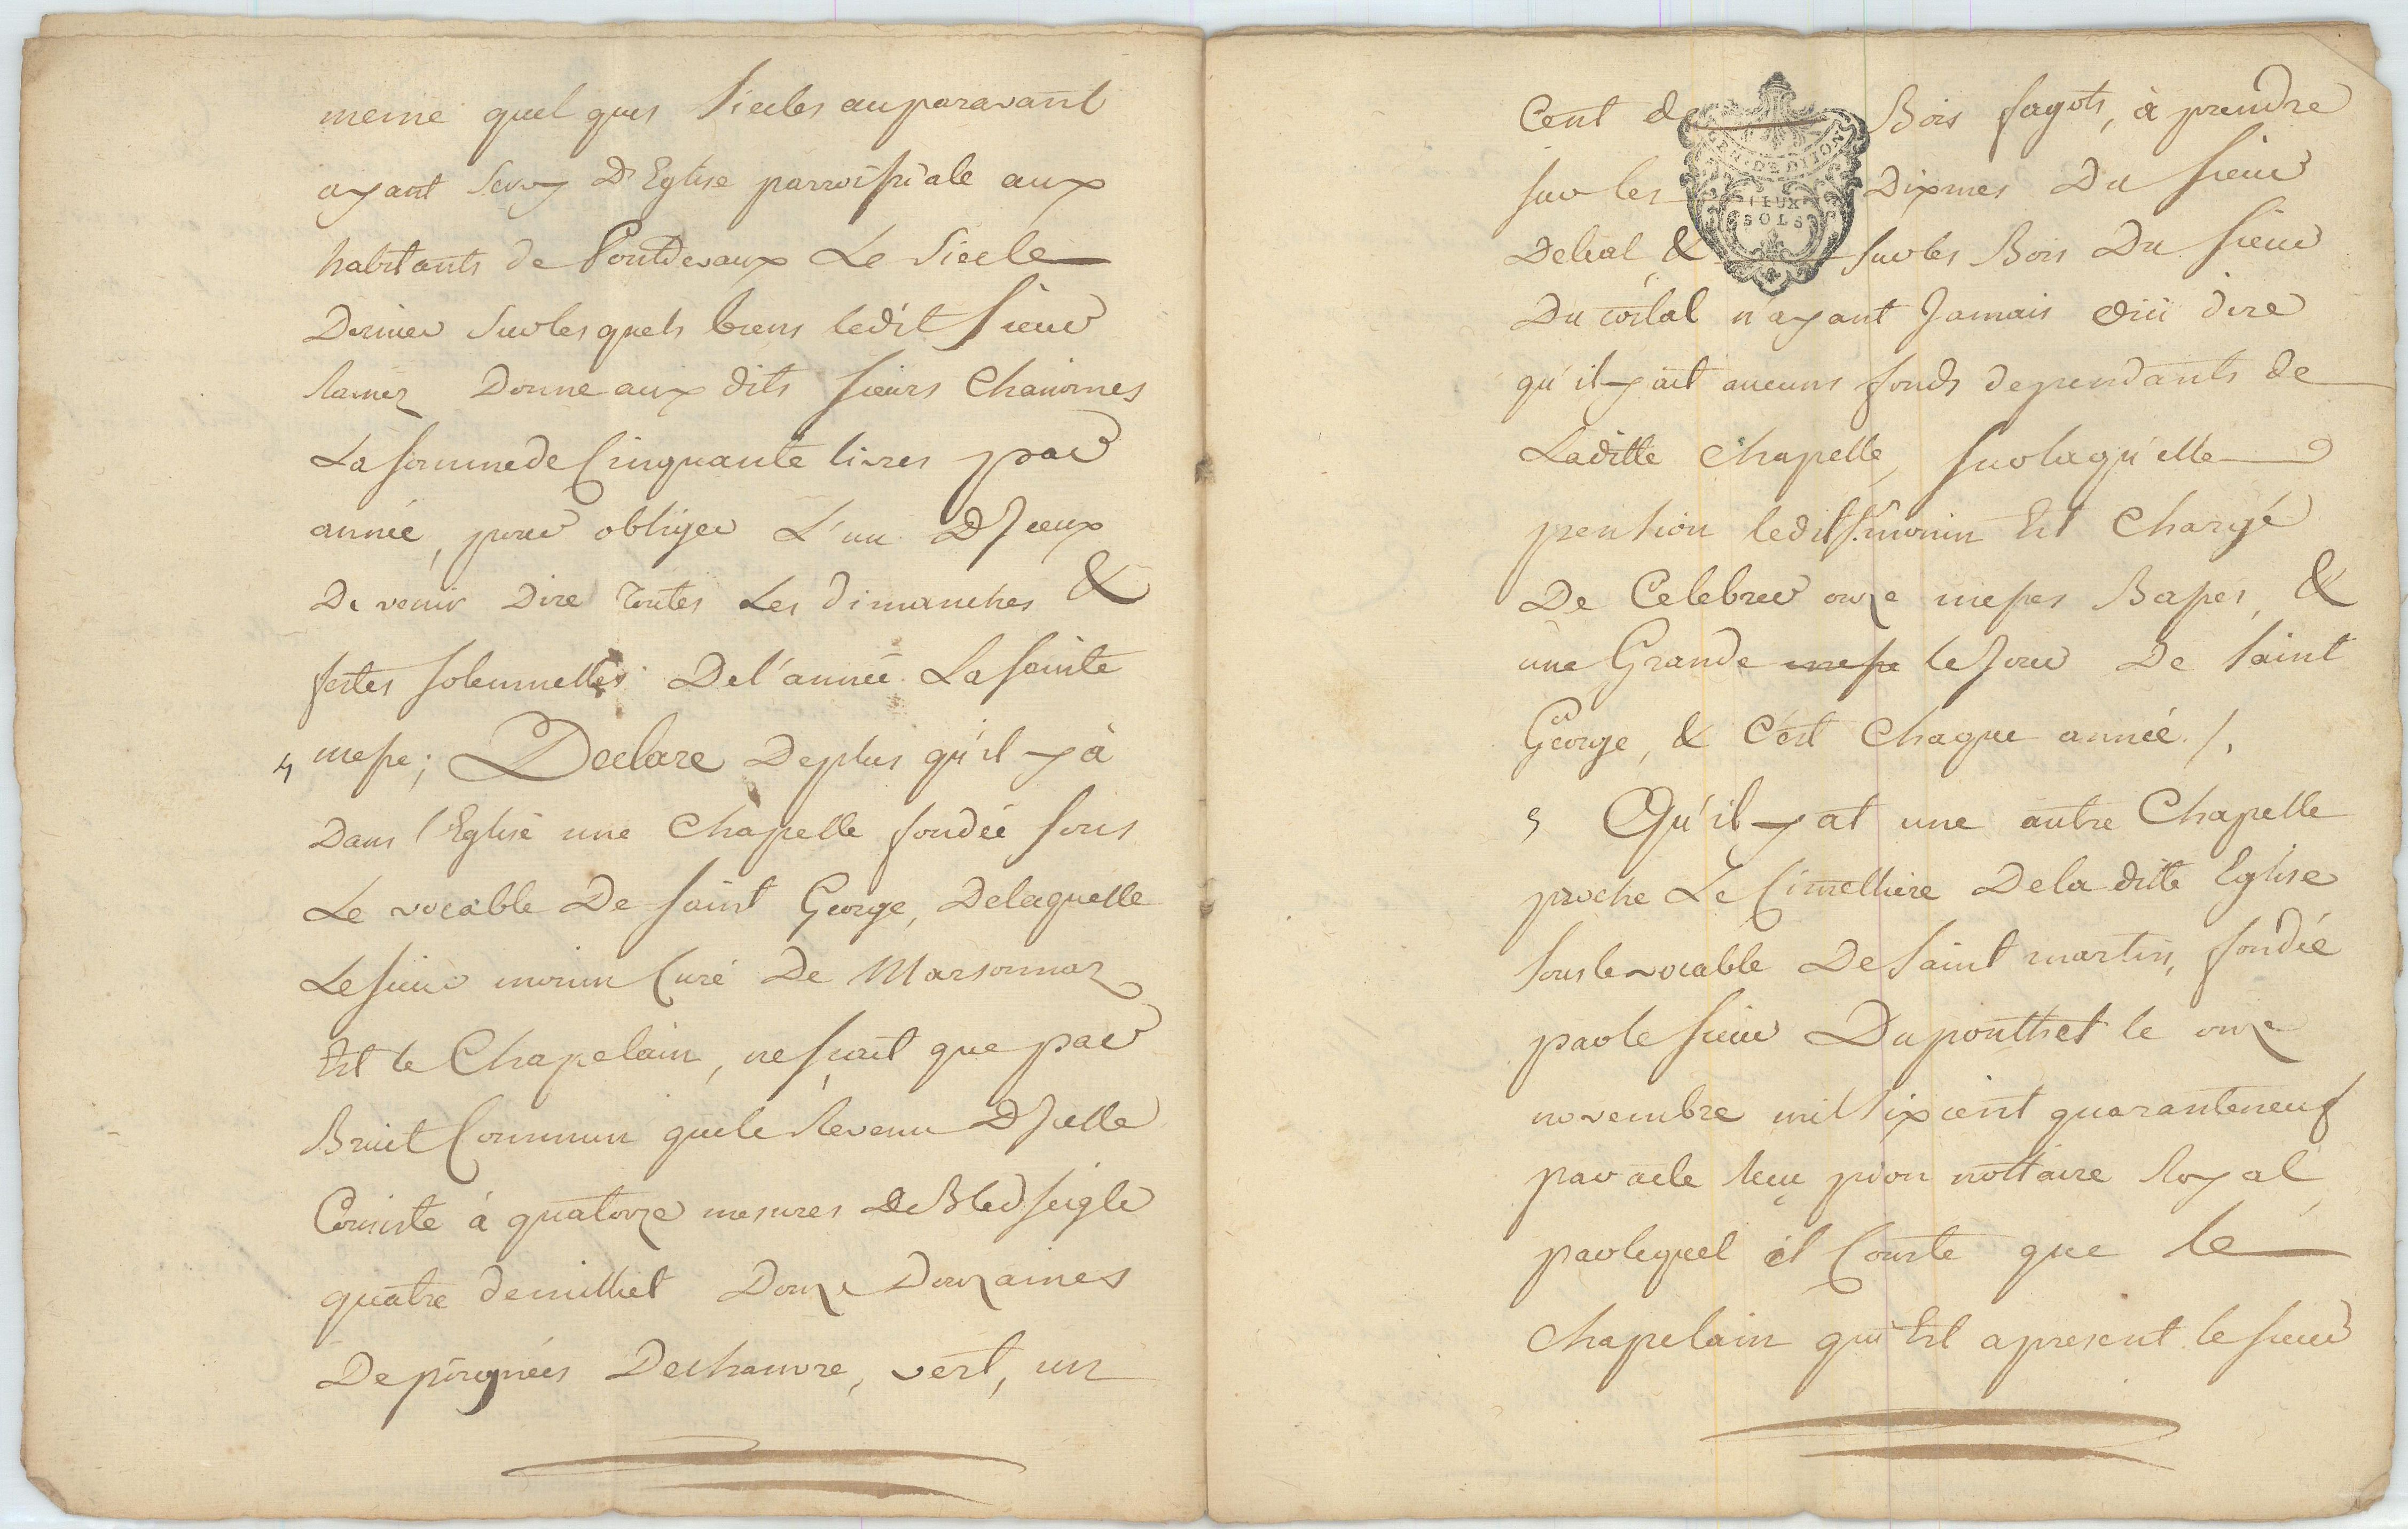 meme quel ques Siecles auparavant
ayant Servy D'Eglise parroissiale aux
habitants de Pontdevaux Le Siecle
Dernier Sur les quels biens ledit Sieur
Ramez Donne aux dits Sieurs Chanoines
La somme de Cinquante livres par
année, pour obliger L'un D'Jceux
De venir Dire toutes Les dimanches &
festes Solemnelles De l'année La Sainte
4 messe; Declare De plus qu'il y à
Dans l'Eglise une Chapelle fondée Sous
Le vocable De Saint George, De laquelle
Le Sieur morin Curé De Marsonnaz
Est le Chapelain, ne sçait que par
Bruit Commun que le Revenu D'Jcelle
Consiste à quatorze mesures De Bled seigle
quatre de milliet Douze Douzaines
De poignées De chanvre, vert, un
Cent de Bois fagots, à prendre
sur les Dixmes Du Sieur
Deleal & sur les Bois Du Sieur
Du n'ayant Jamais oüi dire
qu'il y ait aucuns fonds dependants de
Laditte Chapelle, sur laqu'elle
pention ledit S.r morin Est Chargé
De Celebrer onze messes Basses, &
une Grande messe le Jour De Saint
George, & C'est Chaque année /.
5 Qu'il y at une autre Chapelle
proche Le Cimettiere De la ditte Eglise
Sous le vocable De Saint martin, fondée
par le Sieur Duponthet le onze
novembre mil Six cent quaranteneuf
par acte Reçu pion nottaire Royal
par lequel il Conste que le
Chapelain qui Est apresent le Sieur
GEN. DE DIJON
DEUX
SOLS